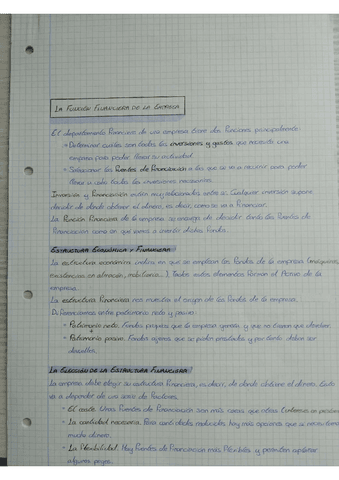 LA FUNCIÓN FINANCIERA DE LA EMPRESA
El departamento financiero de una empresa tiene dos funciones principalmente:
• Determinar cuáles son todas las inversiones y gastos que necesita una
empresa para poder llevar su actividad.
• Seleccionar las fuentes de financiación a las que se va a recurrir para poder
llevar a cabo todas las inversiones necesarias.
Inversión y financiación están muy relacionadas entre sí. Cualquier inversión supone
decidir de donde obtener el dinero, es decir, como se va a financiar.
La función financiera de la empresa se encarga de decidir tanto las fuentes de
financiación como en que vamos a invertir dichos fondos.
ESTRUCTURA ECONÓMICA Y FINANCIERA
La estructura económica indica en que se emplean los fondos de la empresa (maquinaria,
existencias en almacén, mobiliario...). Todos estos elementos forman el Activo de la
empresa.
La estructura financiera nos muestra el origen de los fondos de la empresa.
Diferenciamos entre patrimonio neto y pasivo:
• Patrimonio neto. Fondos propios que la empresa aporta y que no tienen que devolver.
• Patrimonio pasivo. Fondos ajenos que se piden prestados y por tanto deben ser
devueltos.
LA ELECCIÓN DE LA ESTRUCTURA FINANCIERA
La empresa debe elegir su estructura financiera, es decir, de donde obtiene el dinero. Esto
va a depender de una serie de factores.
• El coste. Unas fuentes de financiación son más caras que otras
• La cantidad necesaria. Para cantidades reducidas, hay más opciones que si necesitamos
mucho dinero.
• La flexibilidad. Hay fuentes de financiación más flexibles y permiten aplazar
algunos pagos.